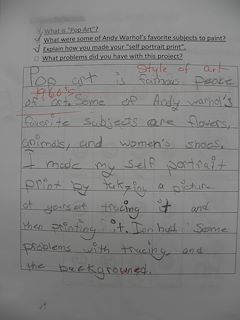 ✓ What is "Pop Art"?
✓ What were some of Andy Warhol's favorite subjects to paint?
✓ Explain how you made your "self portrait print".
□ What problems did you have with this project?
Style of art
Pop art is famous peace
1960's
of art. Some of Andy warhol's
favorite subjects are flowers,
animals, and women's shoes.
I made my self portrait
print by takeing a picture
of yourself tracing it and
then printing it. I had some
problems with tracing and
the background.